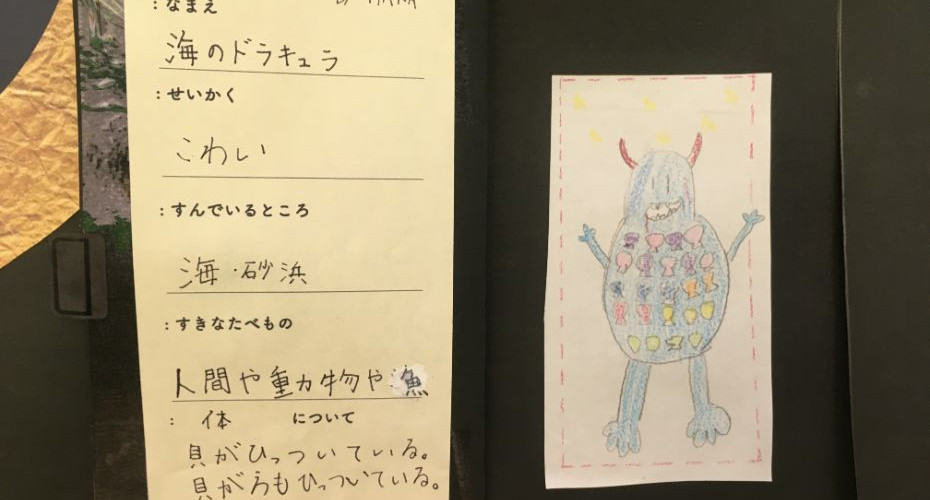 : なまえ
海のドラキュラ
: せいかく
こわい
: すんでいるところ
海・砂浜
: すきなたべもの
人間や動物や魚
: 体 について
貝がひっついている。
貝がらもひっついている。